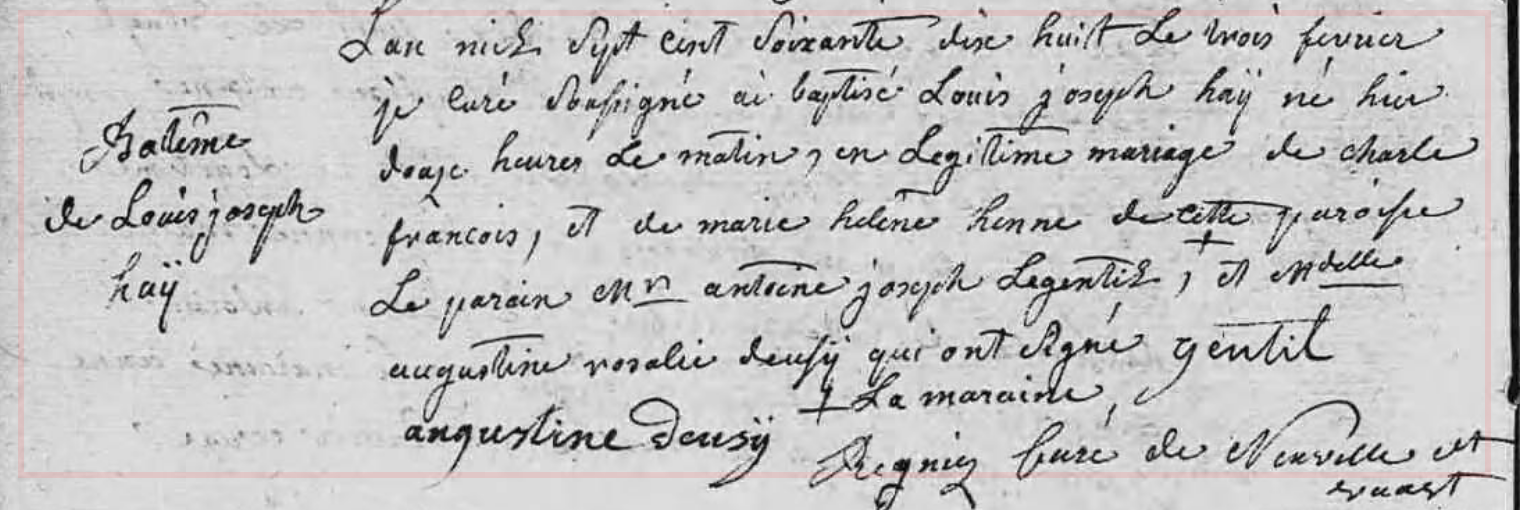 L'an mil sept cent soixante dix huit Le trois fevrier
je curé soussigné ai baptisé Louis joseph haÿ né hier
douze heures Le matin, en Legitime mariage de charle
francois, et de marie heléne henne de cette paroisse
Le parain Mr antoine joseph Legentil, + et Mdelle
augustine rosalie deusÿ qui ont signé gentil
+ La maraine,
augustine Deusÿ
Regniez Curé de Neuville st
vaast
Batême
de Louis joseph
haÿ